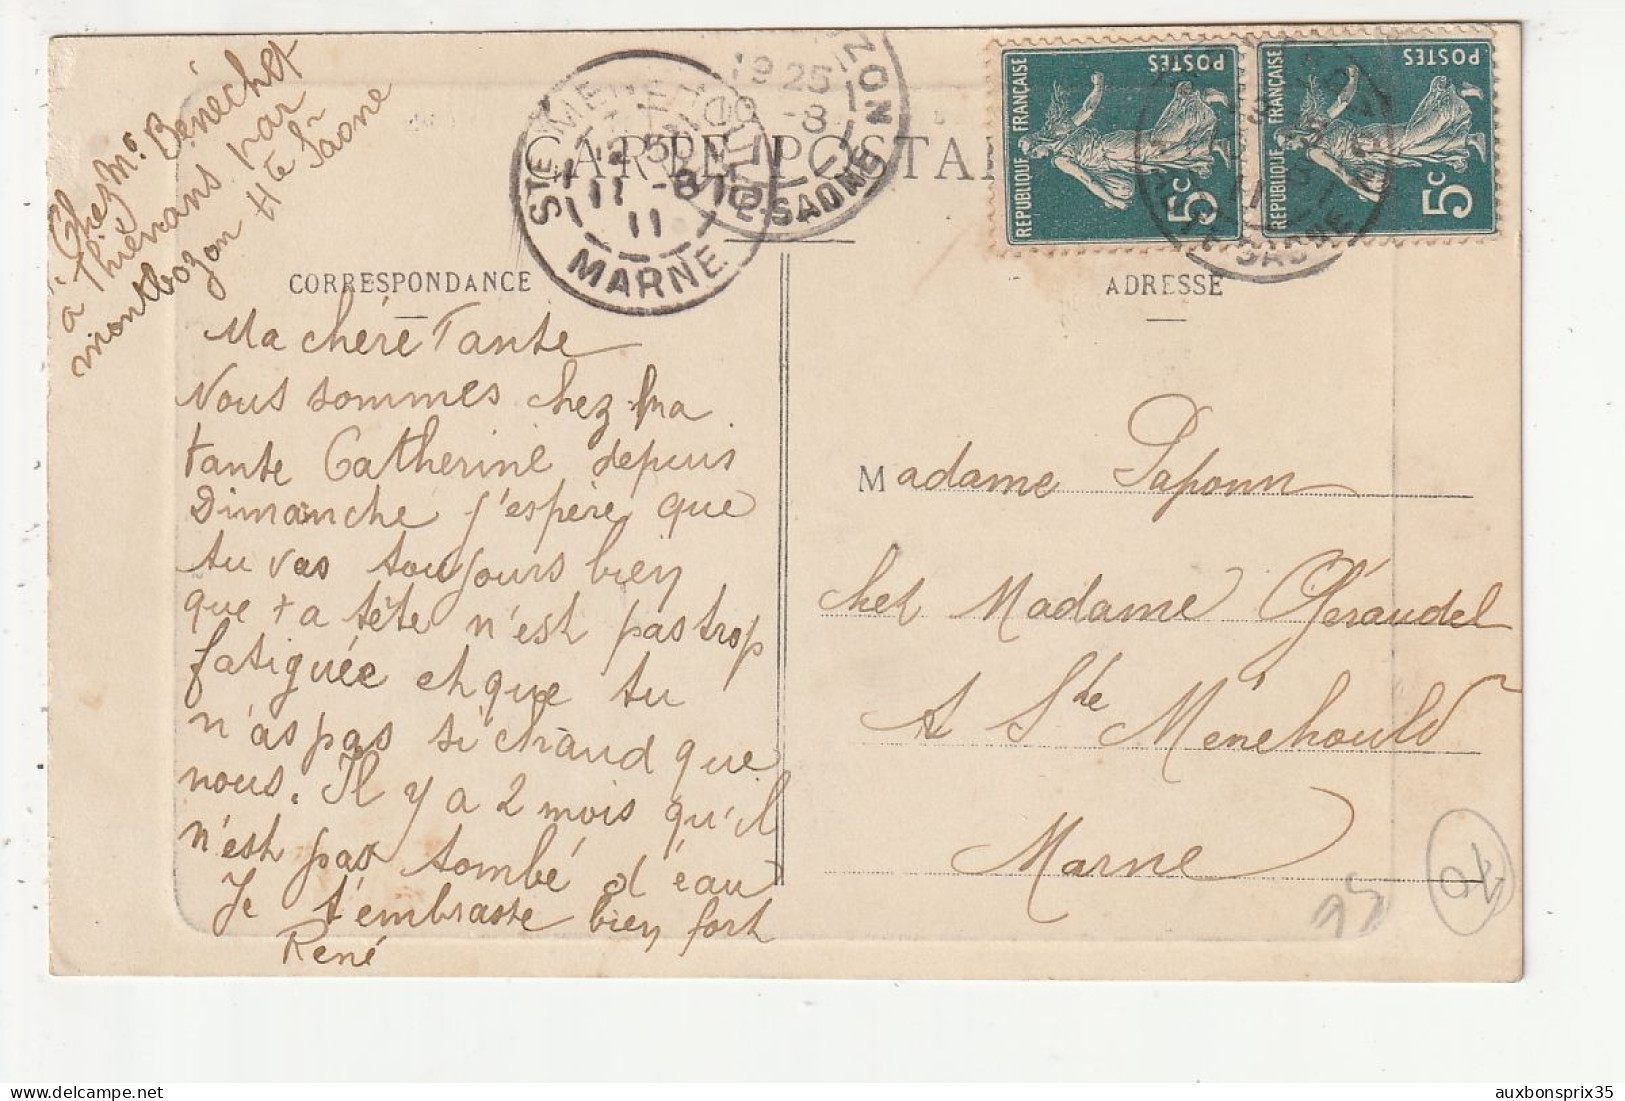 Chez Mr. Bénechet
à Thiénans par
montbozon Hte Saône
CARTE POSTA
19 25
-8
ZON
SAONE
STE MENEHOULD
11 -8
11
MARNE
CORRESPONDANCE
ADRESSE
REPUBLIQUE FRANÇAISE
POSTES
5c
REPUBLIQUE FRANÇAISE
POSTES
5c
Ma chère Tante
Nous sommes chez ma
tante Catherine depuis
Dimanche j'espère que
tu vas toujours bien
que ta tête n'est pas trop
fatiguée et que tu
n'as pas si chaud que
nous. Il y a 2 mois qu'il
n'est pas tombé d'eau
Je t'embrasse bien fort
René
Madame Paponn
chez Madame Géraudel
A Ste Menehould
Marne
10
95
auxbonsprix35